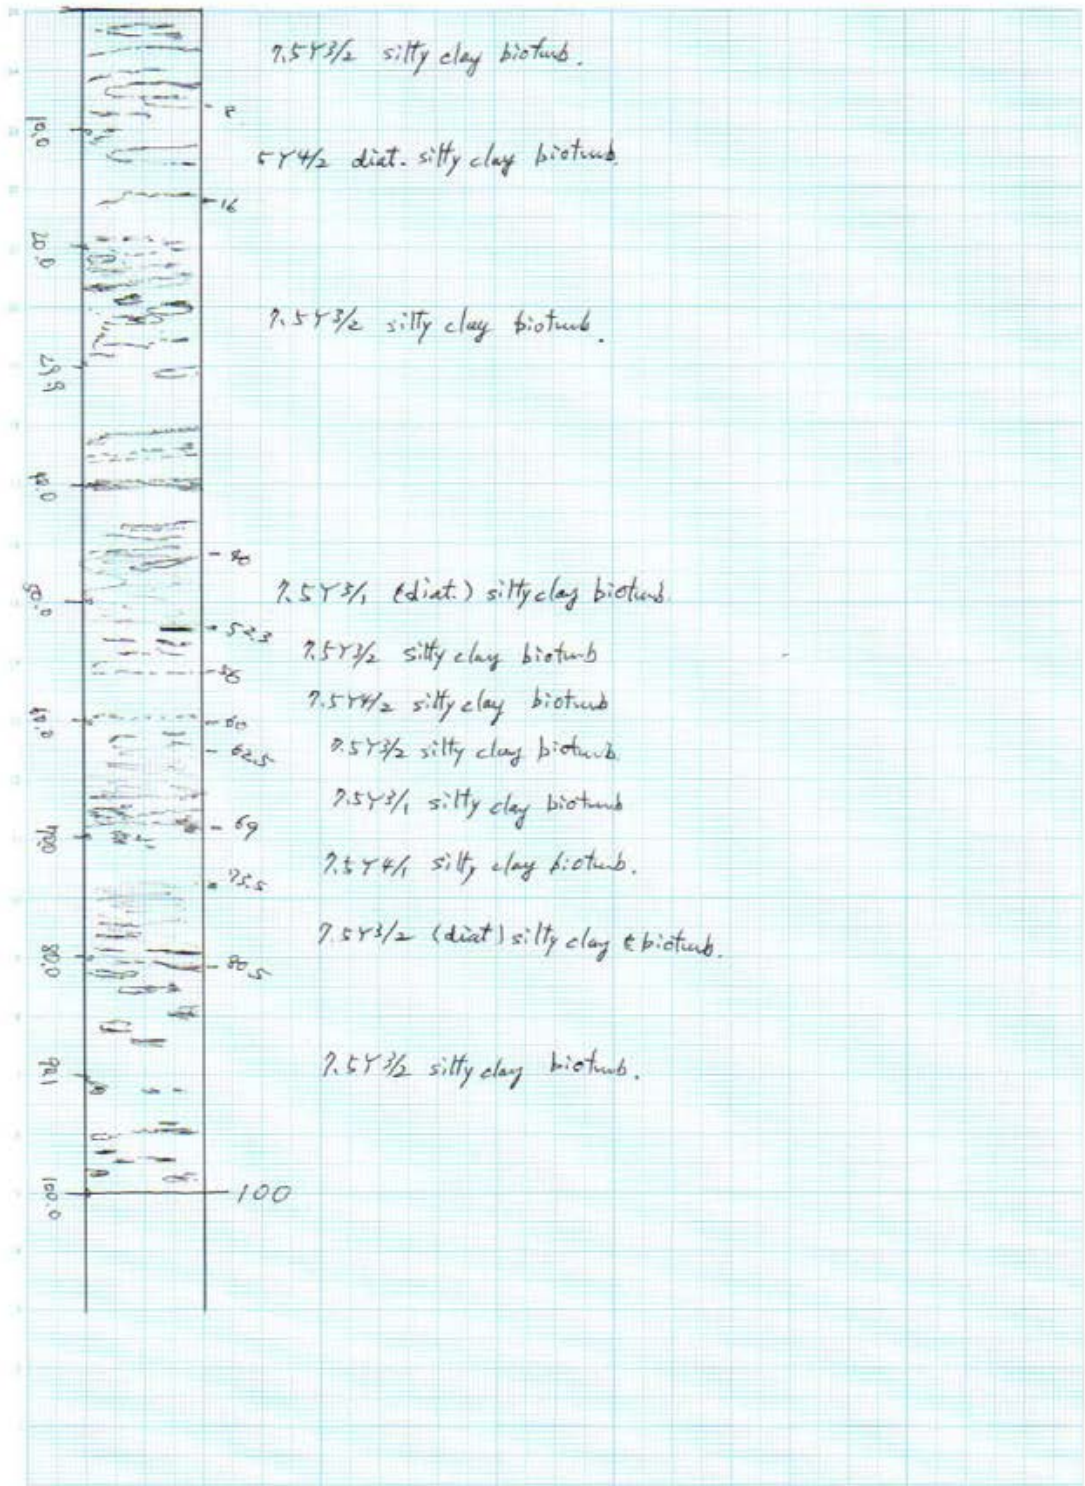 7.5Y3/2 silty clay bioturb.
8
10.0
5Y4/2 diat. silty clay bioturb.
16
20.0
7.5Y3/2 silty clay bioturb.
29.9
40.0
50.0
7.5Y3/1 (diat.) silty clay bioturb.
52.3
7.5Y3/2 silty clay bioturb
56
7.5Y4/2 silty clay bioturb
60
7.5Y3/2 silty clay bioturb.
62.5
7.5Y3/1 silty clay bioturb
69
70.0
7.5Y4/1 silty clay bioturb.
75.5
7.5Y3/2 (diat) silty clay bioturb.
80.0
80.5
7.5Y3/2 silty clay bioturb.
90.1
100.0
100